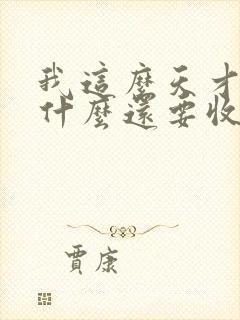 我這麼天才
什麼還要收
賈康